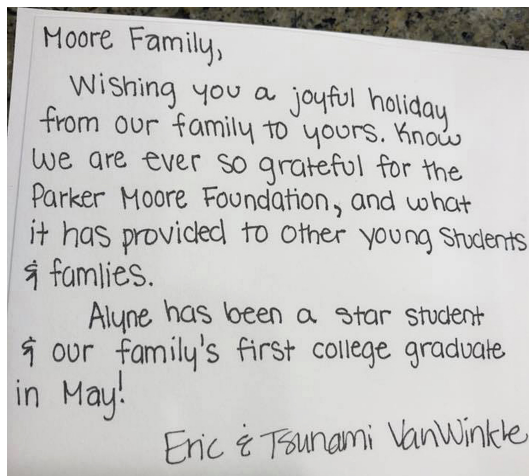 Moore Family,
Wishing you a joyful holiday
from our family to yours. Know
we are ever so grateful for the
Parker Moore Foundation, and what
it has provided to other young students
& famlies.
Alyne has been a star student
& our family's first college graduate
in May!
Eric & Tsunami VanWinkle